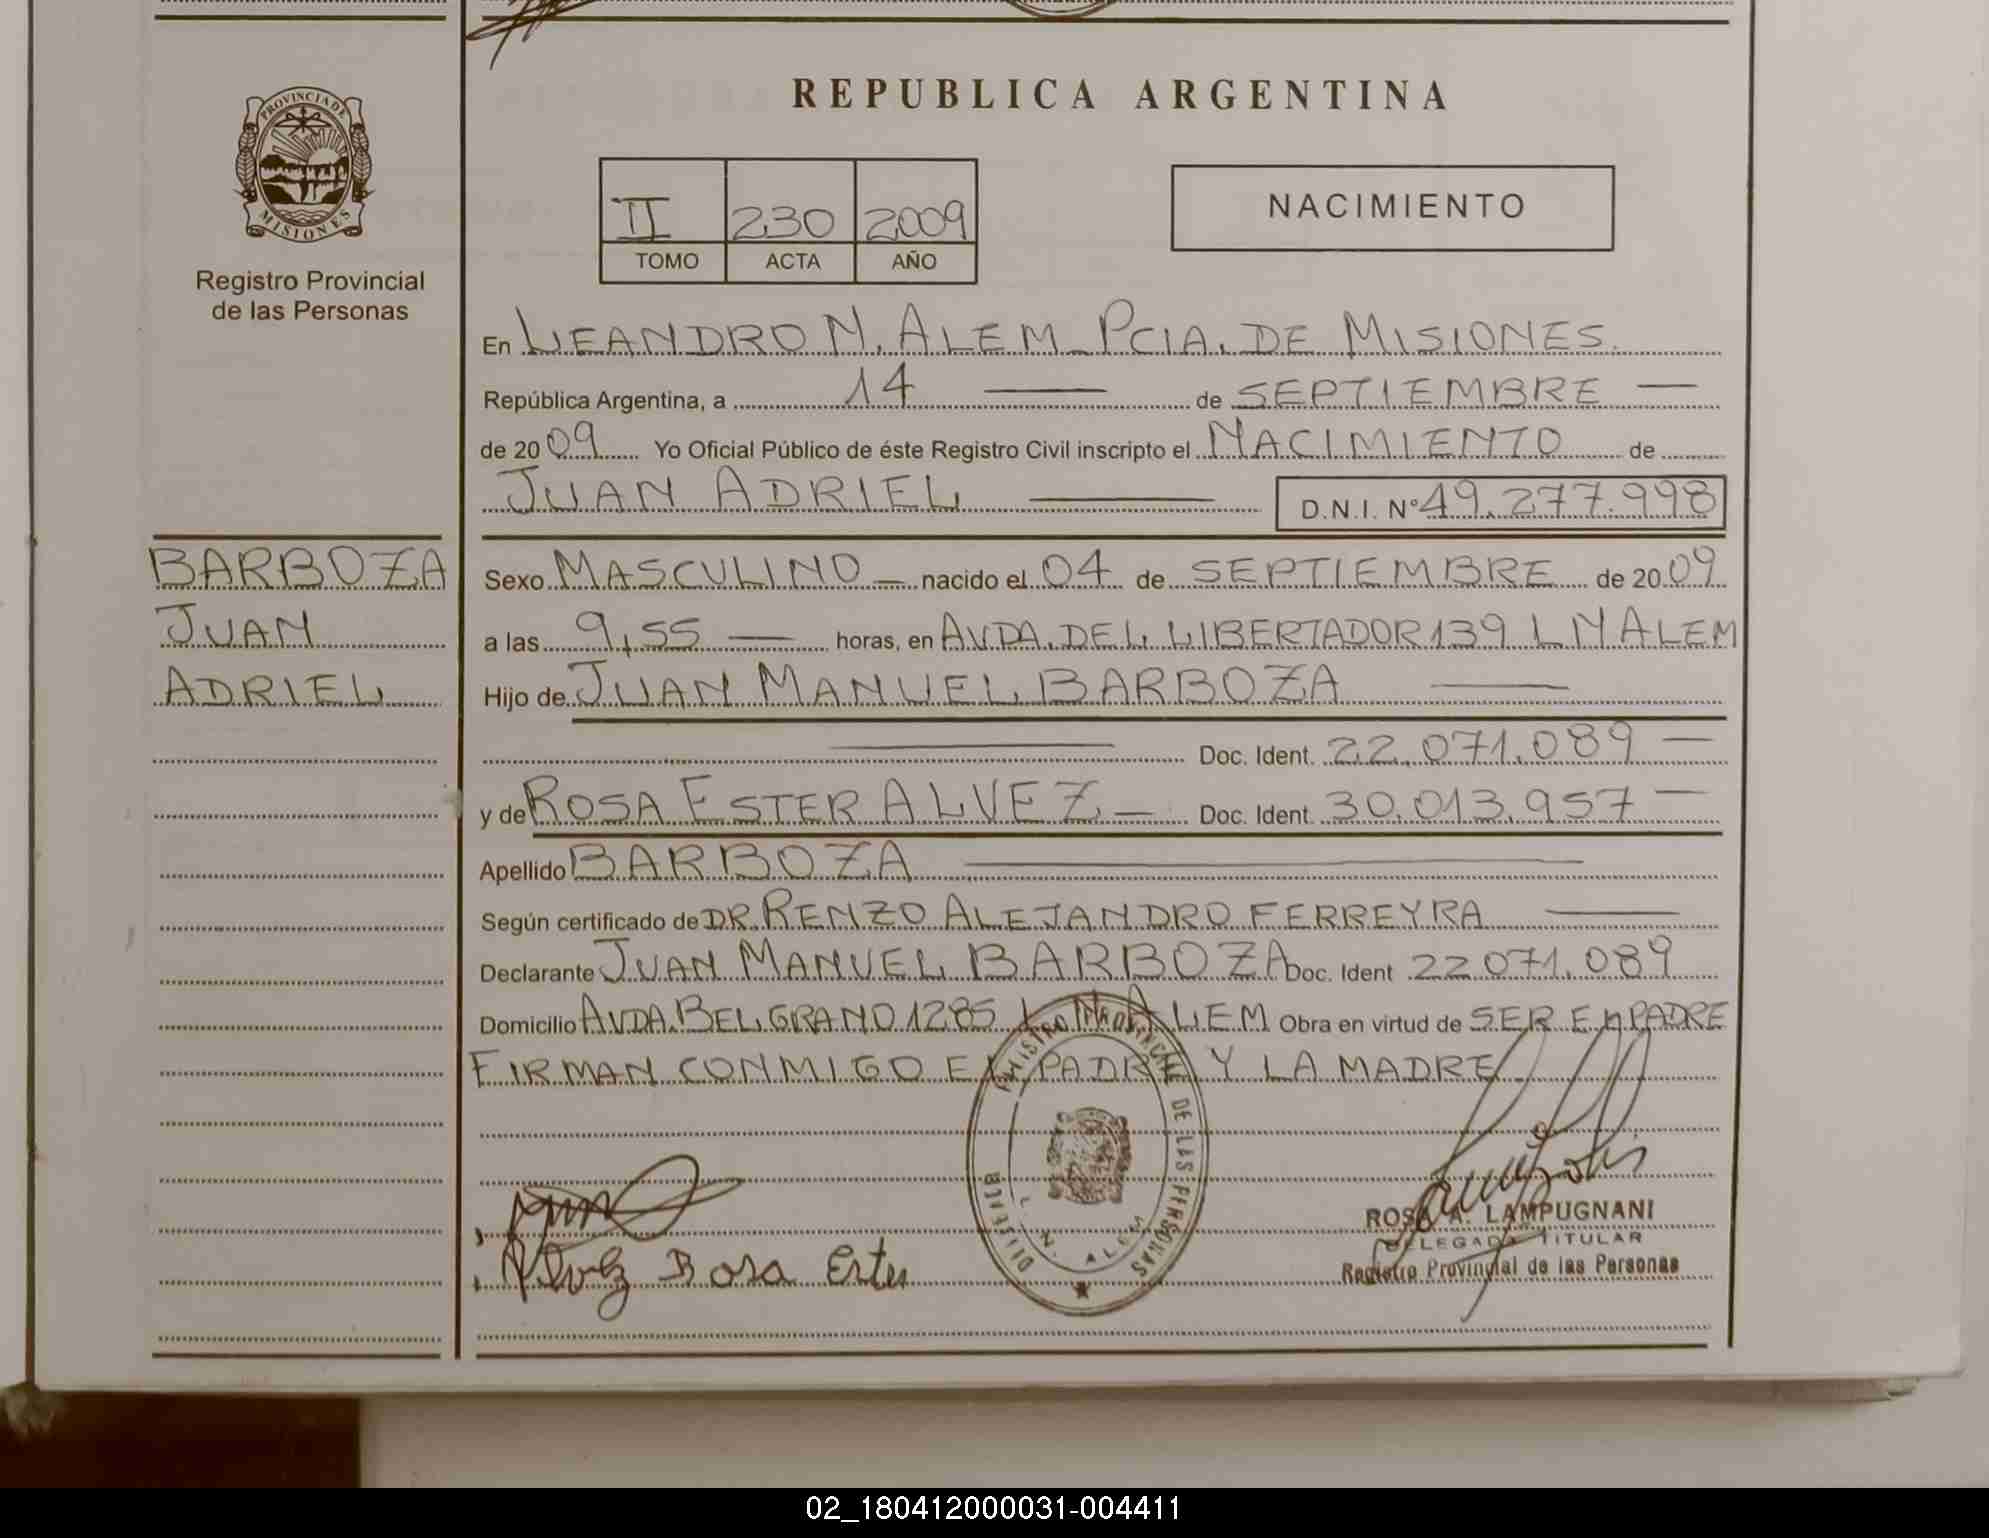 REPUBLICA ARGENTINA
PROVINCIA DE
MISIONES
Registro Provincial
de las Personas
II 230 2009
TOMO ACTA AÑO
NACIMIENTO
En LEANDRO N. ALEM - PCIA. DE MISIONES.
República Argentina, a 14 — de SEPTIEMBRE —
de 2009 Yo Oficial Público de éste Registro Civil inscripto el NACIMIENTO de
JUAN ADRIEL — D.N.I. N° 49.277.998
BARBOZA
JUAN
ADRIEL
Sexo MASCULINO — nacido el 04 de SEPTIEMBRE de 2009
a las 9,55 — horas, en AVDA. DEL LIBERTADOR 139 L N ALEM
Hijo de JUAN MANUEL BARBOZA —
— Doc. Ident. 22.071.089 —
y de ROSA ESTER ALVEZ — Doc. Ident. 30.013.957 —
Apellido BARBOZA —
Según certificado de DR. RENZO ALEJANDRO FERREYRA —
Declarante JUAN MANUEL BARBOZA Doc. Ident 22071.089
Domicilio AVDA. BELGRANO 1285 L N ALEM Obra en virtud de SER EL PADRE
FIRMAN CONMIGO EL PADRE Y LA MADRE
REGISTRO PROVINCIAL DE LAS PERSONAS
L. N. ALEM
Alvez Rosa Ester
ROSA A. LAMPUGNANI
DELEGADA TITULAR
Registro Provincial de las Personas
02_180412000031-004411